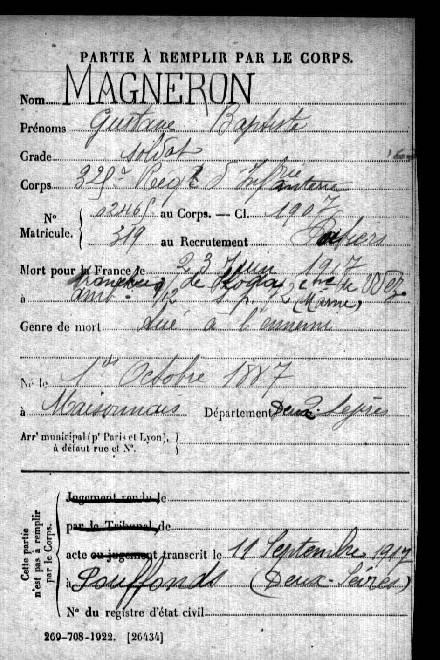 PARTIE À REMPLIR PAR LE CORPS.
Nom MAGNERON
Prénoms Gustave Baptiste
Grade soldat
Corps 325e Regt d'Infanterie
N° Matricule. { 02468 au Corps. — Cl. 1907
319 au Recrutement
Mort pour la France le 23 Juin 1917
tranchées de cne de Wez
à amb. 1/2 S.P. (Marne)
Genre de mort Tué à l'ennemi
Né le 1er Octobre 1887
à Maisonnais Département Deux-Sèvres
Arrt municipal (pr Paris et Lyon), }
à défaut rue et N°.
Cette partie n'est pas à remplir par le Corps.
Jugement rendu le
par le Tribunal de
acte ou jugement transcrit le 11 Septembre 1917
à Pouffonds (Deux-Sèvres)
N° du registre d'état civil
269-708-1922. [26434]